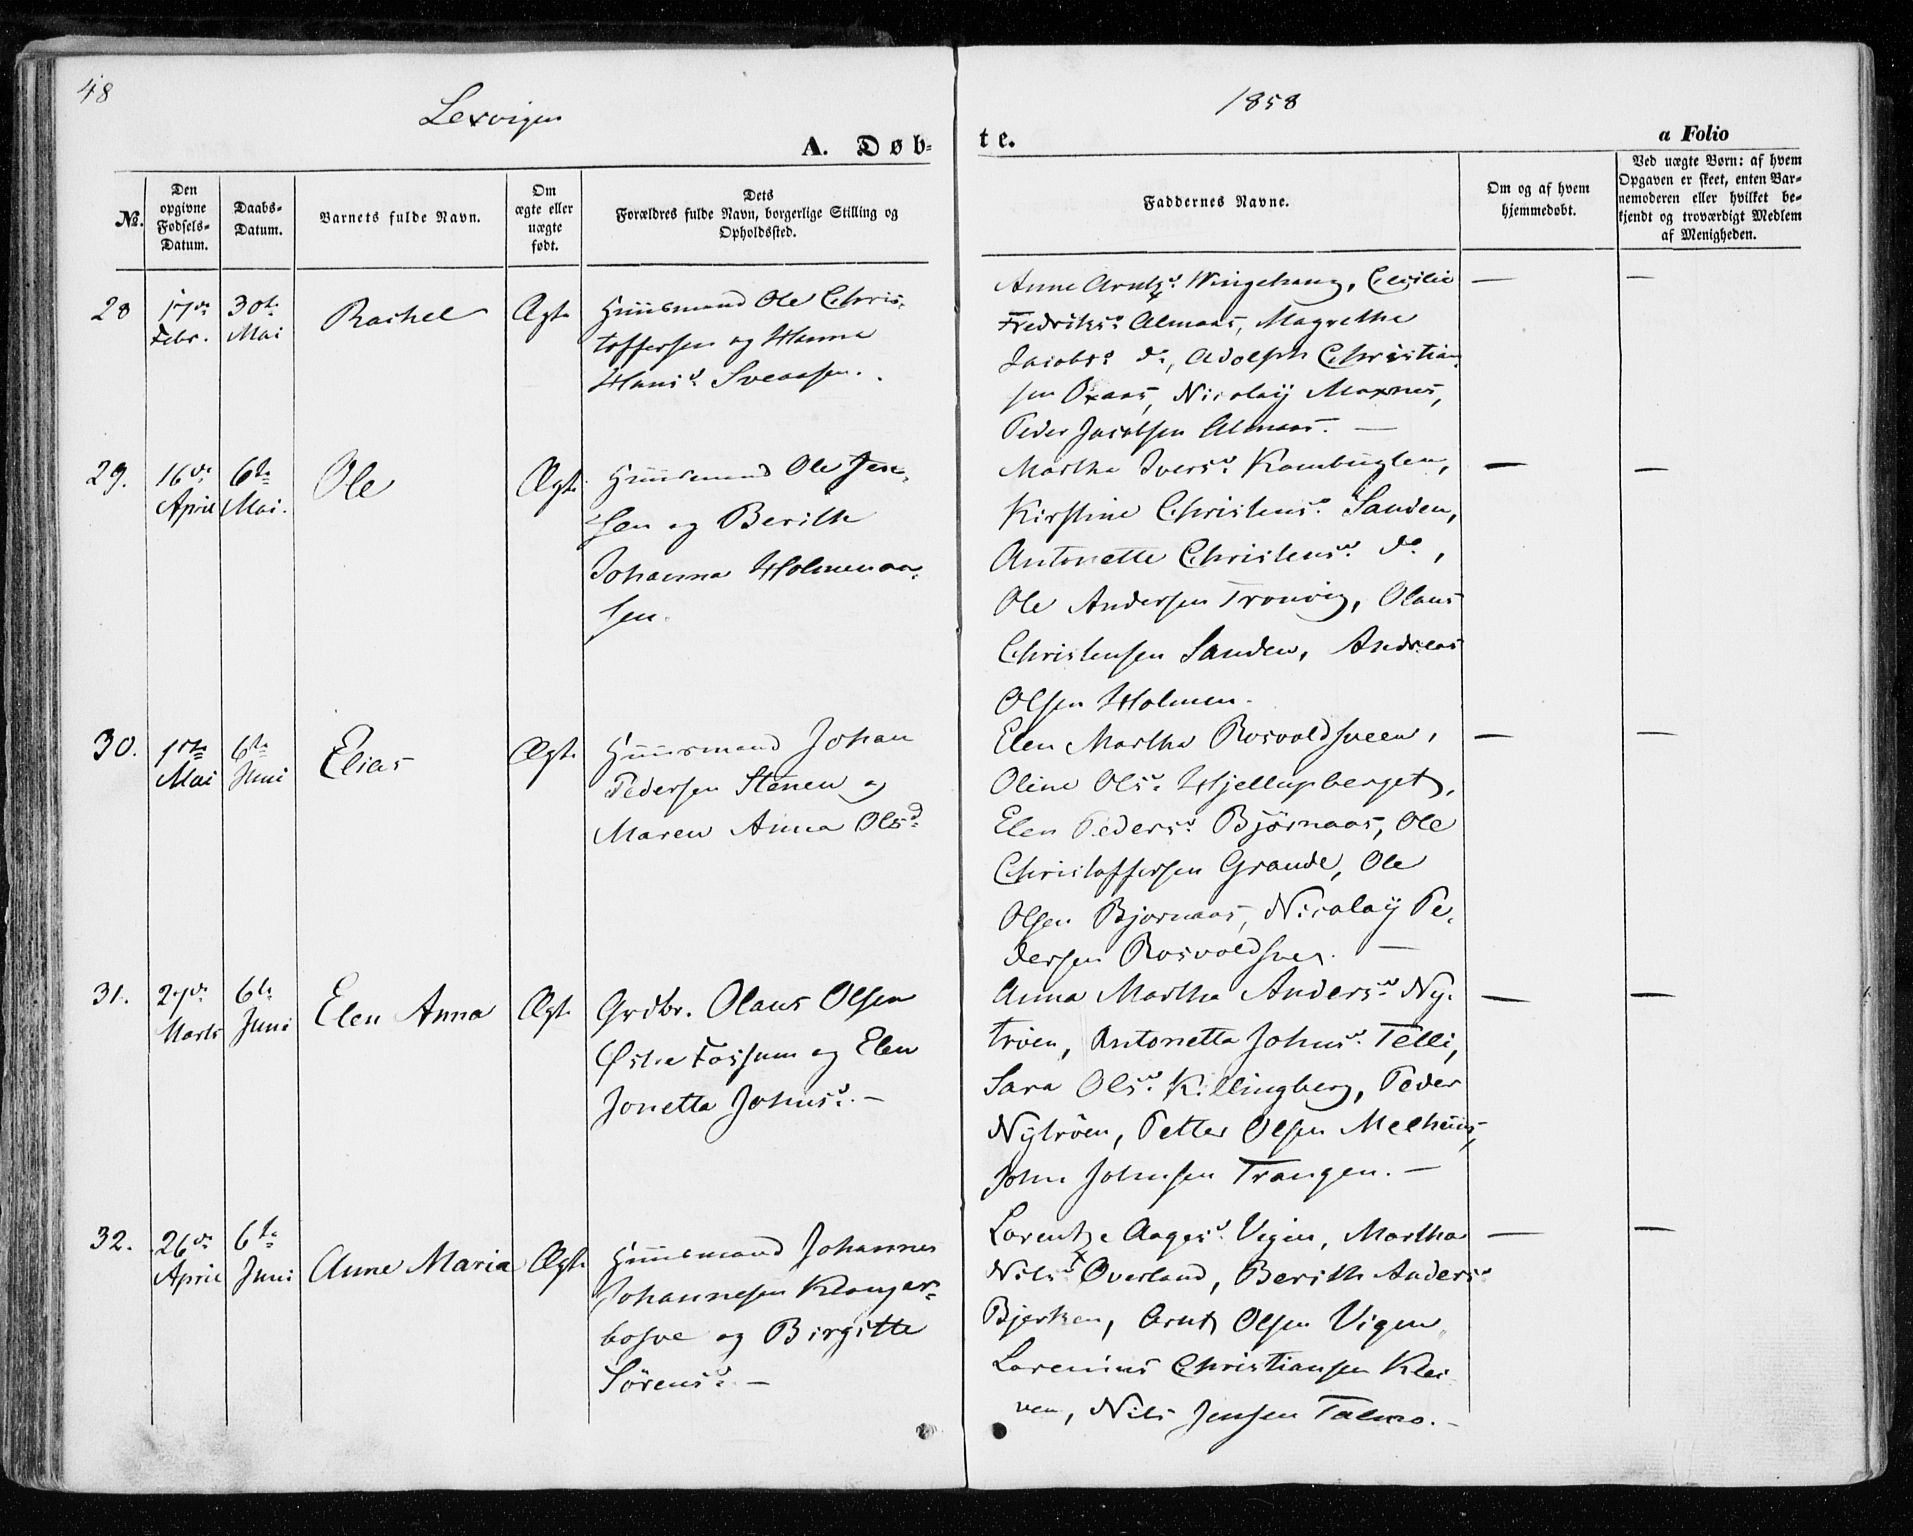 48
Lexvigen
1858
A. Døb-
te.
a Folio
No.
Den opgivne Fødsels-Datum.
Daabs-Datum.
Barnets fulde Navn.
Om ægte eller uægte født.
Dets Forældres fulde Navn, borgerlige Stilling og Opholdssted.
Faddernes Navne.
Om og af hvem hjemmedøbt.
Ved uægte Børn: af hvem Opgaven er skeet, enten Barnemoderen eller hvilket bekjendt og troværdigt Medlem af Menigheden.
28
17de Febr.
30te Mai
Rachel
Ægte
Huusmand Ole Chris-
toffersen og Hanna
Hansd. Sveaasen.
Anne Arntzd. Wingehaug, Cecilie
Fredriksd. Almaas, Magrethe
Jacobsd. do, Adolph Christian-
sen Oxaas, Nicolaÿ Moxnes,
Peder Jacobsen Almaas. —
—
—
29.
16de April
6te Mai.
Ole
Ægte
Huusmand Ole Jen-
sen og Berith
Johanna Holmenaa-
sen.
Martha Iversd. Kambuglen,
Kirstine Christensd. Sanden,
Antonette Christensd. do,
Ole Andersen Tronvig, Olaus
Christensen Sanden, Andreas
Olsen Holmen.
—
—
30.
1ste Mai
6te Juni
Elias
Ægte
Huusmand Johan
Pedersen Stenen og
Maren Anna Olsd.
Elen Martha Rosvoldsveen,
Oline Olsd. Hjellupberget,
Elen Pedersd. Bjørnaas, Ole
Christoffersen Grande, Ole
Olsen Bjornaas, Nicolaÿ Pe-
dersen Rosvoldsve. —
—
—
31.
27de Marts
6te Juni
Elen Anna
Ægte
Grdbr. Olaus Olsen
Østre Fossum og Elen
Jonetta Johnsd. —
Anna Martha Andersd. Ny-
trøen, Antonetta Johnsd. Telli,
Sara Olsd. Killingberg, Peder
Nÿtröen, Petter Olsen Melhuus,
John Johnsen Trangen. —
—
—
32.
26de April
6te Juni
Anne Maria
Ægte
Huusmand Johannes
Johannesen Klanger-
bosve og Birgitte
Sörensd. —
Lorentze Aagesd. Vigen, Martha
Nilsd. Overland, Berith Andersd.
Bjerken, Arnt Olsen Vigen
Lorenius Christiansen Klei-
ven, Nils Jensen Talmo. —
—
—